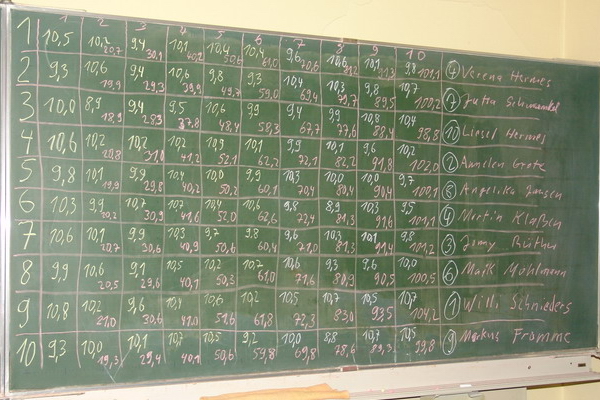 1 2 3 4 5 6 7 8 9 10
10,5 10,2 9,4 10,1 10,4 10,4 9,6 10,6 10,1 9,8 7 Verena Hermes
20,7 30,1 40,2 50,6 61,0 70,6 81,2 91,3 101,1
2 9,3 10,6 9,4 10,6 9,8 9,3 10,4 10,3 9,8 10,7 7 Jutta
19,9 29,3 39,9 49,7 59,0 69,4 79,7 89,5 100,2
3 10,0 8,9 9,4 9,5 10,6 9,9 9,4 9,9 10,8 10,4 10 Liesel Hermes
18,9 28,3 37,8 48,4 58,3 67,7 77,6 88,4 98,8
4 10,6 10,2 10,2 10,2 10,9 10,1 9,9 10,1 9,6 10,2 2 Annelen Grote
20,8 31,0 41,2 52,1 62,2 72,1 82,2 91,8 102,0
5 9,8 10,1 9,9 10,4 10,0 9,9 10,3 10,0 10,0 9,7 8 Angelika Jansen
19,9 29,8 40,2 50,2 60,1 70,4 80,4 90,4 100,1
6 10,3 9,9 10,7 10,7 10,4 10,6 9,8 8,9 10,3 9,5 4 Martin Klaßen
20,2 30,9 41,6 52,0 62,6 72,4 81,3 91,6 101,1
7 10,6 10,1 9,9 10,3 9,7 9,8 9,6 10,3 10,1 9,8 3 Jimy
20,7 30,6 40,9 50,6 60,4 81,3 91,4 101,2
8 9,9 10,6 9,1 10,5 10,2 10,7 10,6 9,3 9,6 10,0 6 Maik Mählmann
20,5 29,6 40,1 50,3 61,0 71,6 80,9 90,5 100,5
9 10,8 10,2 9,6 10,4 10,6 10,2 10,5 10,7 10,5 10,7 1 Willi Schnieders
21,0 30,6 41,0 51,6 61,8 72,3 83,0 93,5 104,2
10 9,3 10,0 10,1 10,7 10,5 9,2 10,0 8,8 10,7 10,5 9 Markus Framme
19,3 29,4 40,1 50,6 59,8 69,8 78,6 89,3 99,8